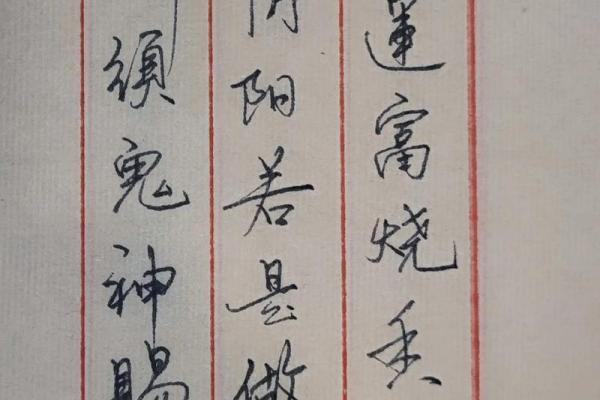 蓮富烧香
阴阳若是做
须鬼神赐